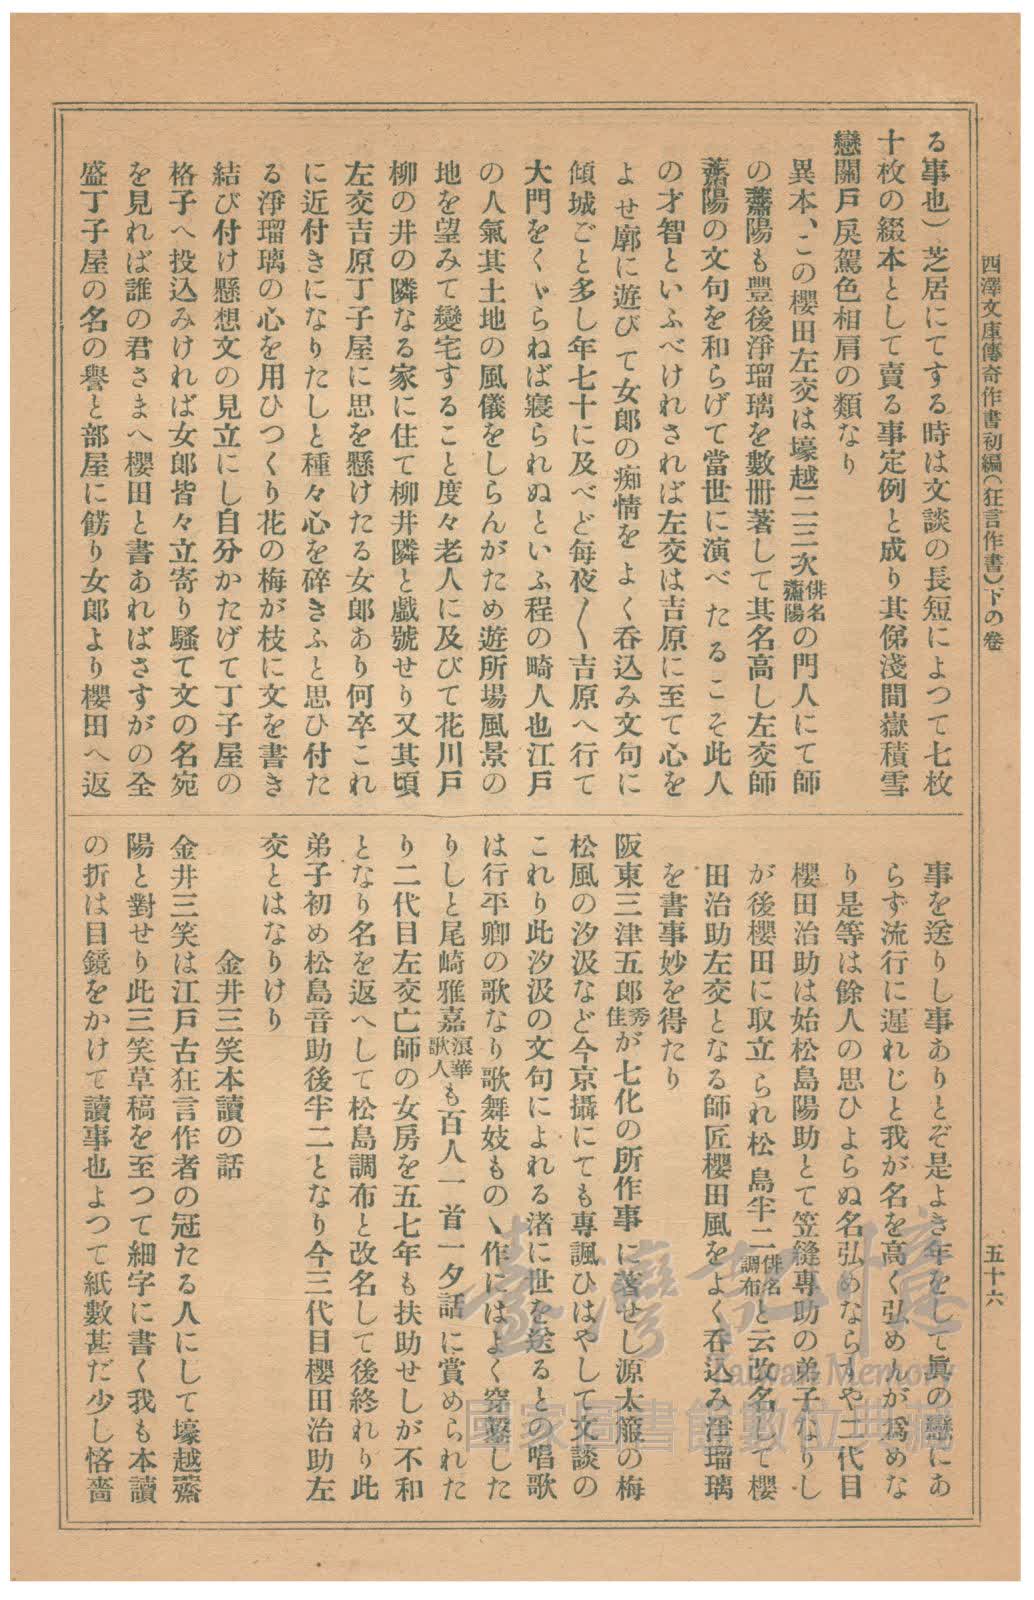 西澤文庫傳奇作書初編(狂言作書)下の卷
五十六
る事也)芝居にてする時は文談の長短によつて七枚
十枚の綴本として賣る事定例と成り其俤淺間嶽積雪
戀關戸戻駕色相肩の類なり
異本、この櫻田左交は壕越二三次俳名薺陽の門人にて師
の薺陽も豐後淨瑠璃を數冊著して其名高し左交師
薺陽の文句を和らげて當世に演べたるこそ此人
の才智といふべけれされば左交は吉原に至て心を
よせ廓に遊びて女郎の痴情をよく呑込み文句に
傾城ごと多し年七十に及べど每夜〱吉原へ行て
大門をくゞらねば寢られぬといふ程の畸人也江戸
の人氣其土地の風儀をしらんがため遊所場風景の
地を望みて變宅すること度々老人に及びて花川戸
柳の井の隣なる家に住て柳井隣と戲號せり又其頃
左交吉原丁子屋に思を懸けたる女郎あり何卒これ
に近付きになりたしと種々心を碎きふと思ひ付た
る淨瑠璃の心を用ひつくり花の梅が枝に文を書き
結び付け懸想文の見立にし自分かたげて丁子屋の
格子へ投込みければ女郎皆々立寄り騷て文の名宛
を見れば誰の君さまへ櫻田と書あればさすがの全
盛丁子屋の名の譽と部屋に餝り女郎より櫻田へ返
事を送りし事ありとぞ是よき年をして眞の戀にあ
らず流行に遲れじと我が名を高く弘めんが爲めな
り是等は餘人の思ひよらぬ名弘めならずや二代目
櫻田治助は始松島陽助とて笠縫專助の弟子なりし
が後櫻田に取立られ松島半二俳名調布と云改名して櫻
田治助左交となる師匠櫻田風をよく呑込み淨瑠璃
を書事妙を得たり
阪東三津五郎秀佳が七化の所作事に著せし源太箙の梅
松風の汐汲など今京攝にても專諷ひはやして文談の
これり此汐汲の文句によれる渚に世を送るとの唱歌
は行平卿の歌なり歌舞妓ものゝ作にはよく穿鑿した
りしと尾崎雅嘉浪華歌人も百人一首一夕話に賞められた
り二代目左交亡師の女房を五七年も扶助せしが不和
となり名を返へして松島調布と改名して後終れり此
弟子初め松島音助後半二となり今三代目櫻田治助左
交とはなりけり
金井三笑本讀の話
金井三笑は江戸古狂言作者の冠たる人にして壕越薺
陽と對せり此三笑草稿を至つて細字に書く我も本讀
の折は目鏡をかけて讀事也よつて紙數甚だ少し悋嗇
臺灣記憶
Taiwan Memory
國家圖書館數位典藏